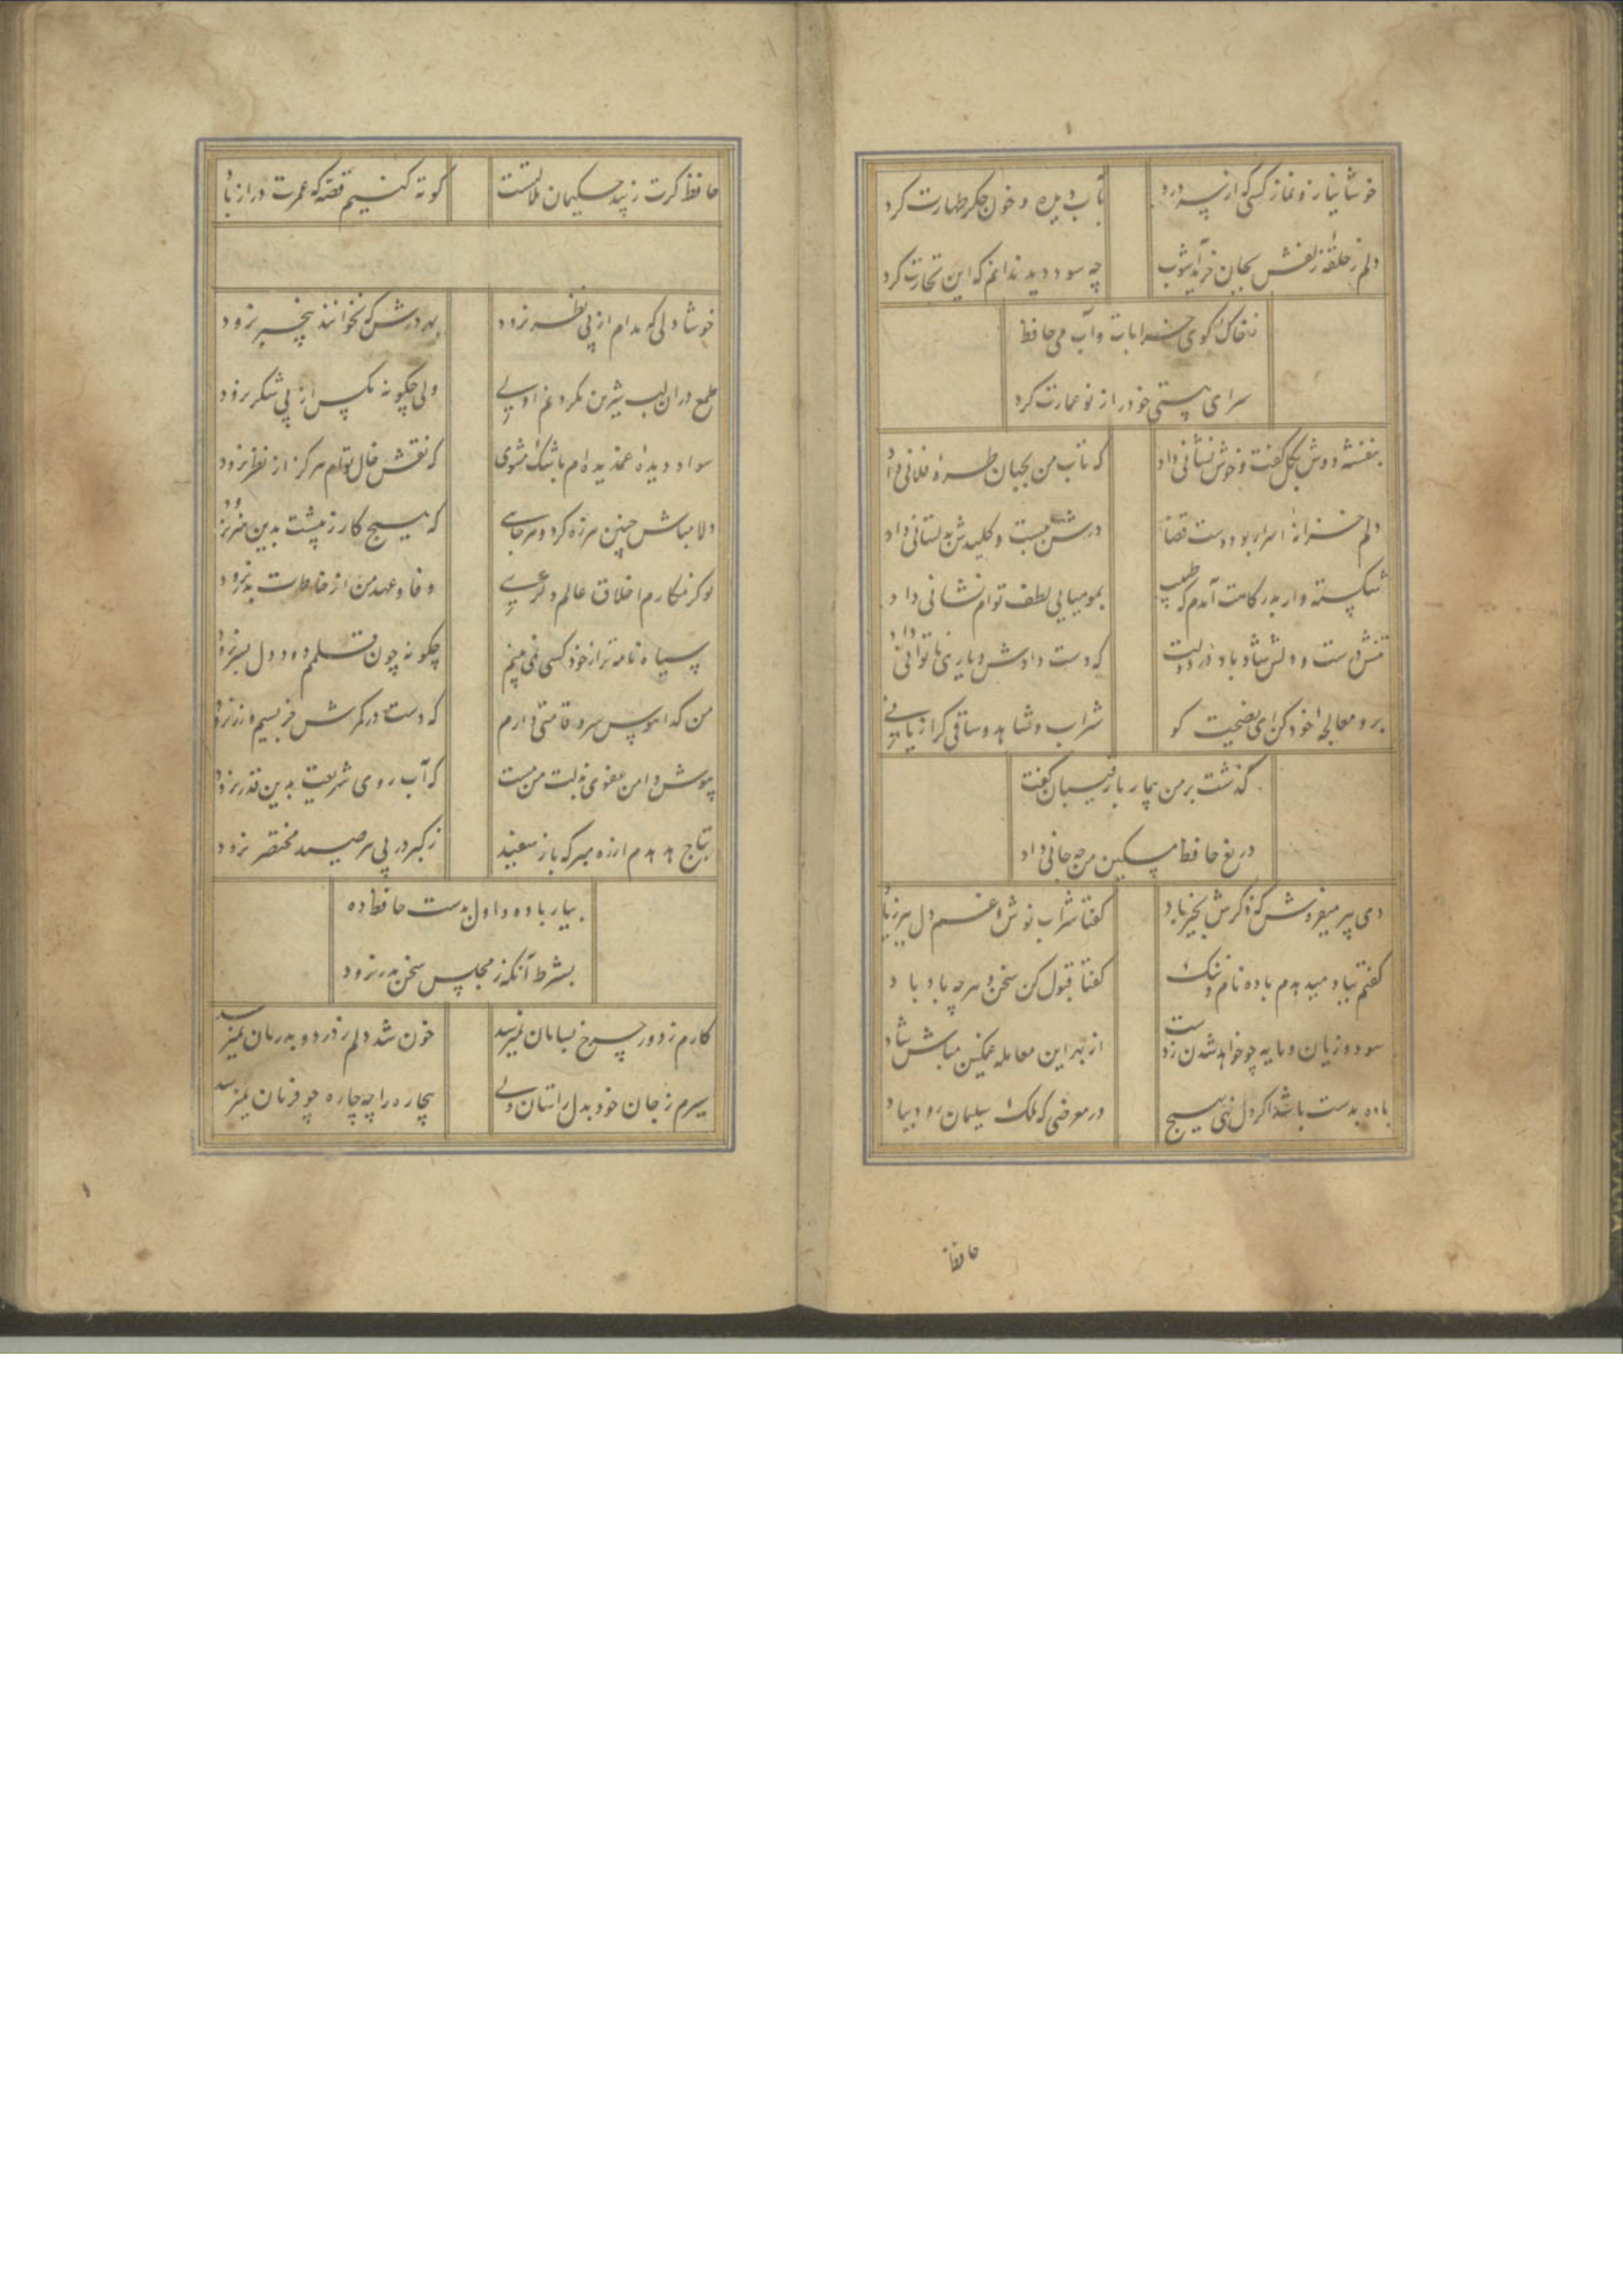 خوشا نیاز و نماز کسی که از سر درد بآب دیده و خون جکر طهارت کرد
دلم ز حلقه زلفش بجان خرید آشوب چه سود دید ندانم که این تجارت کرد
ز خاک کوی خرابات و آب می حافظ
سرای هستی خود را ز نو عمارت کرد
بنفشه دوش بکل کفت و خوش نشانی داد که تاب من بجهان طره فلانی داد
دلم خزانه اسرار بود و دست قضا درش ببست و کلیدش بدلستانی داد
شکسته وار بدرکاهت آمدم که طبیب بمومیایی لطف توام نشانی داد
تنش درست و دلش شاد باد در دولت که دست دادش و یاری ناتوانی داد
برو معالجه خود کن ای نصیحت کو شراب و شاهد و ساقی کرا زیانی
کذشت بر من بیمار با رقیبان کفت
دریغ حافظ مسکین من چه جانی داد
دی پیر میفروش که ذکرش بخیر باد کفتا شراب نوش و غم دل ببر ز یاد
کفتم بباد میدهدم باده نام و ننک کفتا قبول کن سخن و هرچه باد باد
سود و زیان و مایه چو خواهد شدن ز دست از بهر این معامله غمکین مباش شاد
بادت بدست باشد اکر دل نهی بهیج در معرضی که ملک سلیمان رود بباد
حافظ
حافظ کرت ز پند حکیمان ملالتست کوته کنیم قصه که عمرت دراز باد
خوشا دلی که مدام از پی نظر نرود بهر درش که بخوانند بیخبر نرود
طمع دران لب شیرین نکردنم اولی ولی چکونه مکس از پی شکر نرود
سواد دیده غمدیده ام باشک مشوی که نقش خال توام هرکز از نظر نرود
دلا مباش چنین هرزه کرد و هرجایی که هیج کار ز پیشت بدین هنر نرود
تو کز مکارم اخلاق عالم دکری وفا و عهد من از خاطرت بدر نرود
سیاه نامه تر از خود کسی نمی بینم چکونه چون قلمم دود دل بسر نرود
من کدا هوس سرو قامتی دارم که دست در کمرش جز بسیم و زر نرود
بپوش دامن عفوی بذلت من مست که آب روی شریعت بدین قدر نرود
بتاج هدهدم از ره مبر که باز سفید ز کبر در پی هر صید مختصر نرود
بیار باده و اول بدست حافظ ده
بشرط آنکه ز مجلس سخن بدر نرود
کارم ز دور چرخ بسامان نمیرسد خون شد دلم ز درد و بدرمان نمیرسد
سیرم ز جان خود بدل راستان ولی بیچاره را چه چاره چو فرمان نمیرسد